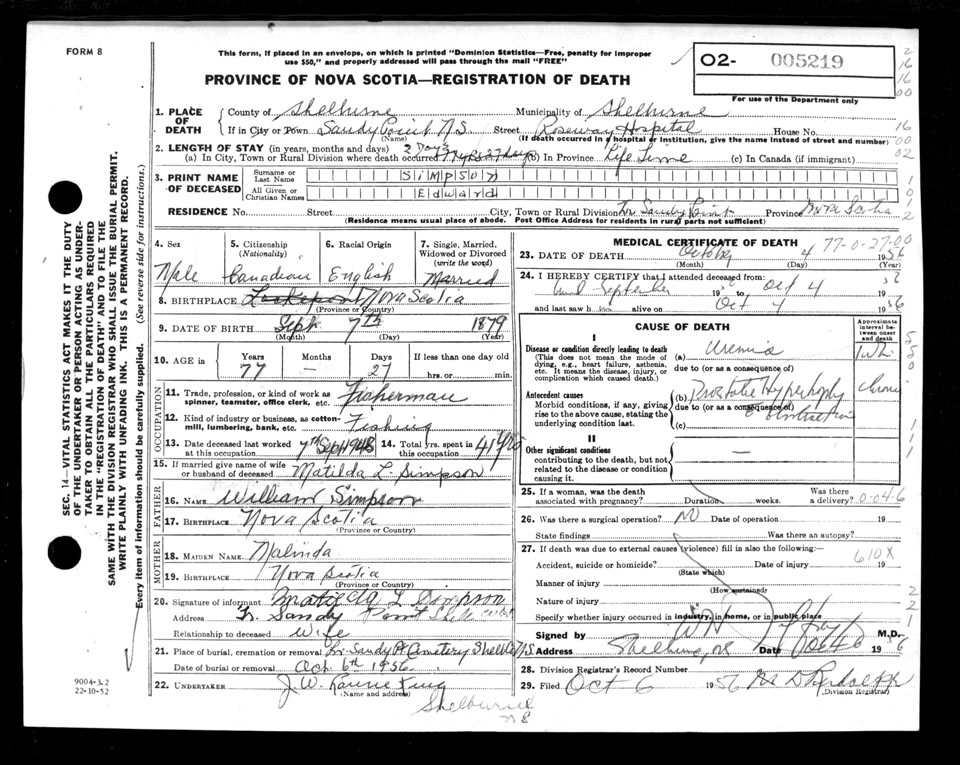 FORM 8
This form, if placed in an envelope, on which is printed "Dominion Statistics—Free, penalty for improper
use $50," and properly addressed will pass through the mail "FREE"
02- 005219
For use of the Department only
PROVINCE OF NOVA SCOTIA—REGISTRATION OF DEATH
1. PLACE OF DEATH
County of Shelburne Municipality of Shelburne
If in City or Town Sandy Point N.S. Street Roseway Hospital House No.
(Name) (If death occurred in a hospital or institution, give the name instead of street and number)
2. LENGTH OF STAY (in years, months and days)
(a) In City, Town or Rural Division where death occurred 77 yrs 27 days (b) In Province Life Time (c) In Canada (if immigrant)
3. PRINT NAME OF DECEASED
Surname or Last Name Simpson
All Given or Christian Names Edward
RESIDENCE No. Street City, Town or Rural Division Lr. Sandy Point Province Nova Scotia
(Residence means usual place of abode. Post Office Address for residents in rural parts not sufficient)
4. Sex Male
5. Citizenship (Nationality) Canadian
6. Racial Origin English
7. Single, Married, Widowed or Divorced (write the word) Married
8. BIRTHPLACE Lockeport Nova Scotia
(Province or Country)
9. DATE OF BIRTH Sept. 7th 1879
(Month) (Day) (Year)
10. AGE in Years Months Days If less than one day old
77 — 27 hrs. or min.
OCCUPATION
11. Trade, profession, or kind of work as spinner, teamster, office clerk, etc. Fisherman
12. Kind of industry or business, as cotton-mill, lumbering, bank, etc. Fishing
13. Date deceased last worked at this occupation 7th Sept 1948 14. Total yrs. spent in this occupation 41 yrs
15. If married give name of wife or husband of deceased Matilda L. Simpson
FATHER
16. NAME William Simpson
17. BIRTHPLACE Nova Scotia
(Province or Country)
MOTHER
18. MAIDEN NAME Malinda
19. BIRTHPLACE Nova Scotia
(Province or Country)
20. Signature of informant Matilda L Simpson
Address Lr. Sandy Point Shel
Relationship to deceased Wife
21. Place of burial, cremation or removal Lr Sandy Pt Cemetery Shelb Co N.S.
Date of burial or removal Oct 6th 1956
22. UNDERTAKER J. W.
(Name and address)
Shelburne
NS
MEDICAL CERTIFICATE OF DEATH
77-0-27-00
23. DATE OF DEATH October 4 1956
(Month) (Day) (Year)
24. I HEREBY CERTIFY that I attended deceased from:
September 19 Oct 4
and last saw h alive on Oct 4 1956
CAUSE OF DEATH
Approximate interval between onset and death
I
Disease or condition directly leading to death
(This does not mean the mode of dying, e.g., heart failure, asthenia, etc. It means the disease, injury, or complication which caused death.)
(a) Uremia 1 wk
due to (or as a consequence of)
Antecedent causes
Morbid conditions, if any, giving rise to the above cause, stating the underlying condition last.
(b) Prostatic Hypertrophy
due to (or as a consequence of)
(c)
II
Other significant conditions
contributing to the death, but not related to the disease or condition causing it.
—
25. If a woman, was the death associated with pregnancy? Duration weeks. Was there a delivery? 0-04-6
26. Was there a surgical operation? No Date of operation 19
State findings Was there an autopsy?
27. If death was due to external causes (violence) fill in also the following:— 610X
Accident, suicide or homicide? Date of injury 19
(State which)
Manner of injury
(How sustained)
Nature of injury
Specify whether injury occurred in industry, in home, or in public place
Signed by M.D.
Address Shelburne, NS Date Oct 4 1956
28. Division Registrar's Record Number
29. Filed Oct 6 1956
(Division Registrar)
SEC. 14—VITAL STATISTICS ACT MAKES IT THE DUTY
OF THE UNDERTAKER OR PERSON ACTING AS UNDER-
TAKER TO OBTAIN ALL THE PARTICULARS REQUIRED
IN THE "REGISTRATION OF DEATH" AND TO FILE THE
SAME WITH THE DIVISION REGISTRAR WHO SHALL ISSUE THE BURIAL PERMIT.
WRITE PLAINLY WITH UNFADING INK. THIS IS A PERMANENT RECORD.
Every item of information should be carefully supplied. (See reverse side for instructions.)
9004-3.2
22-10-52